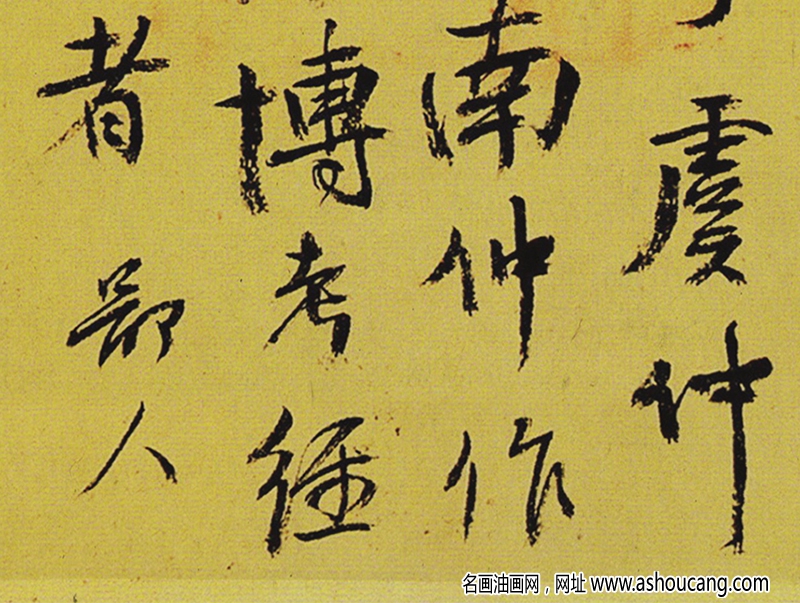 虞仲
南仲作
博考経
者前人
名画油画网，网址 www.ashoucang.com